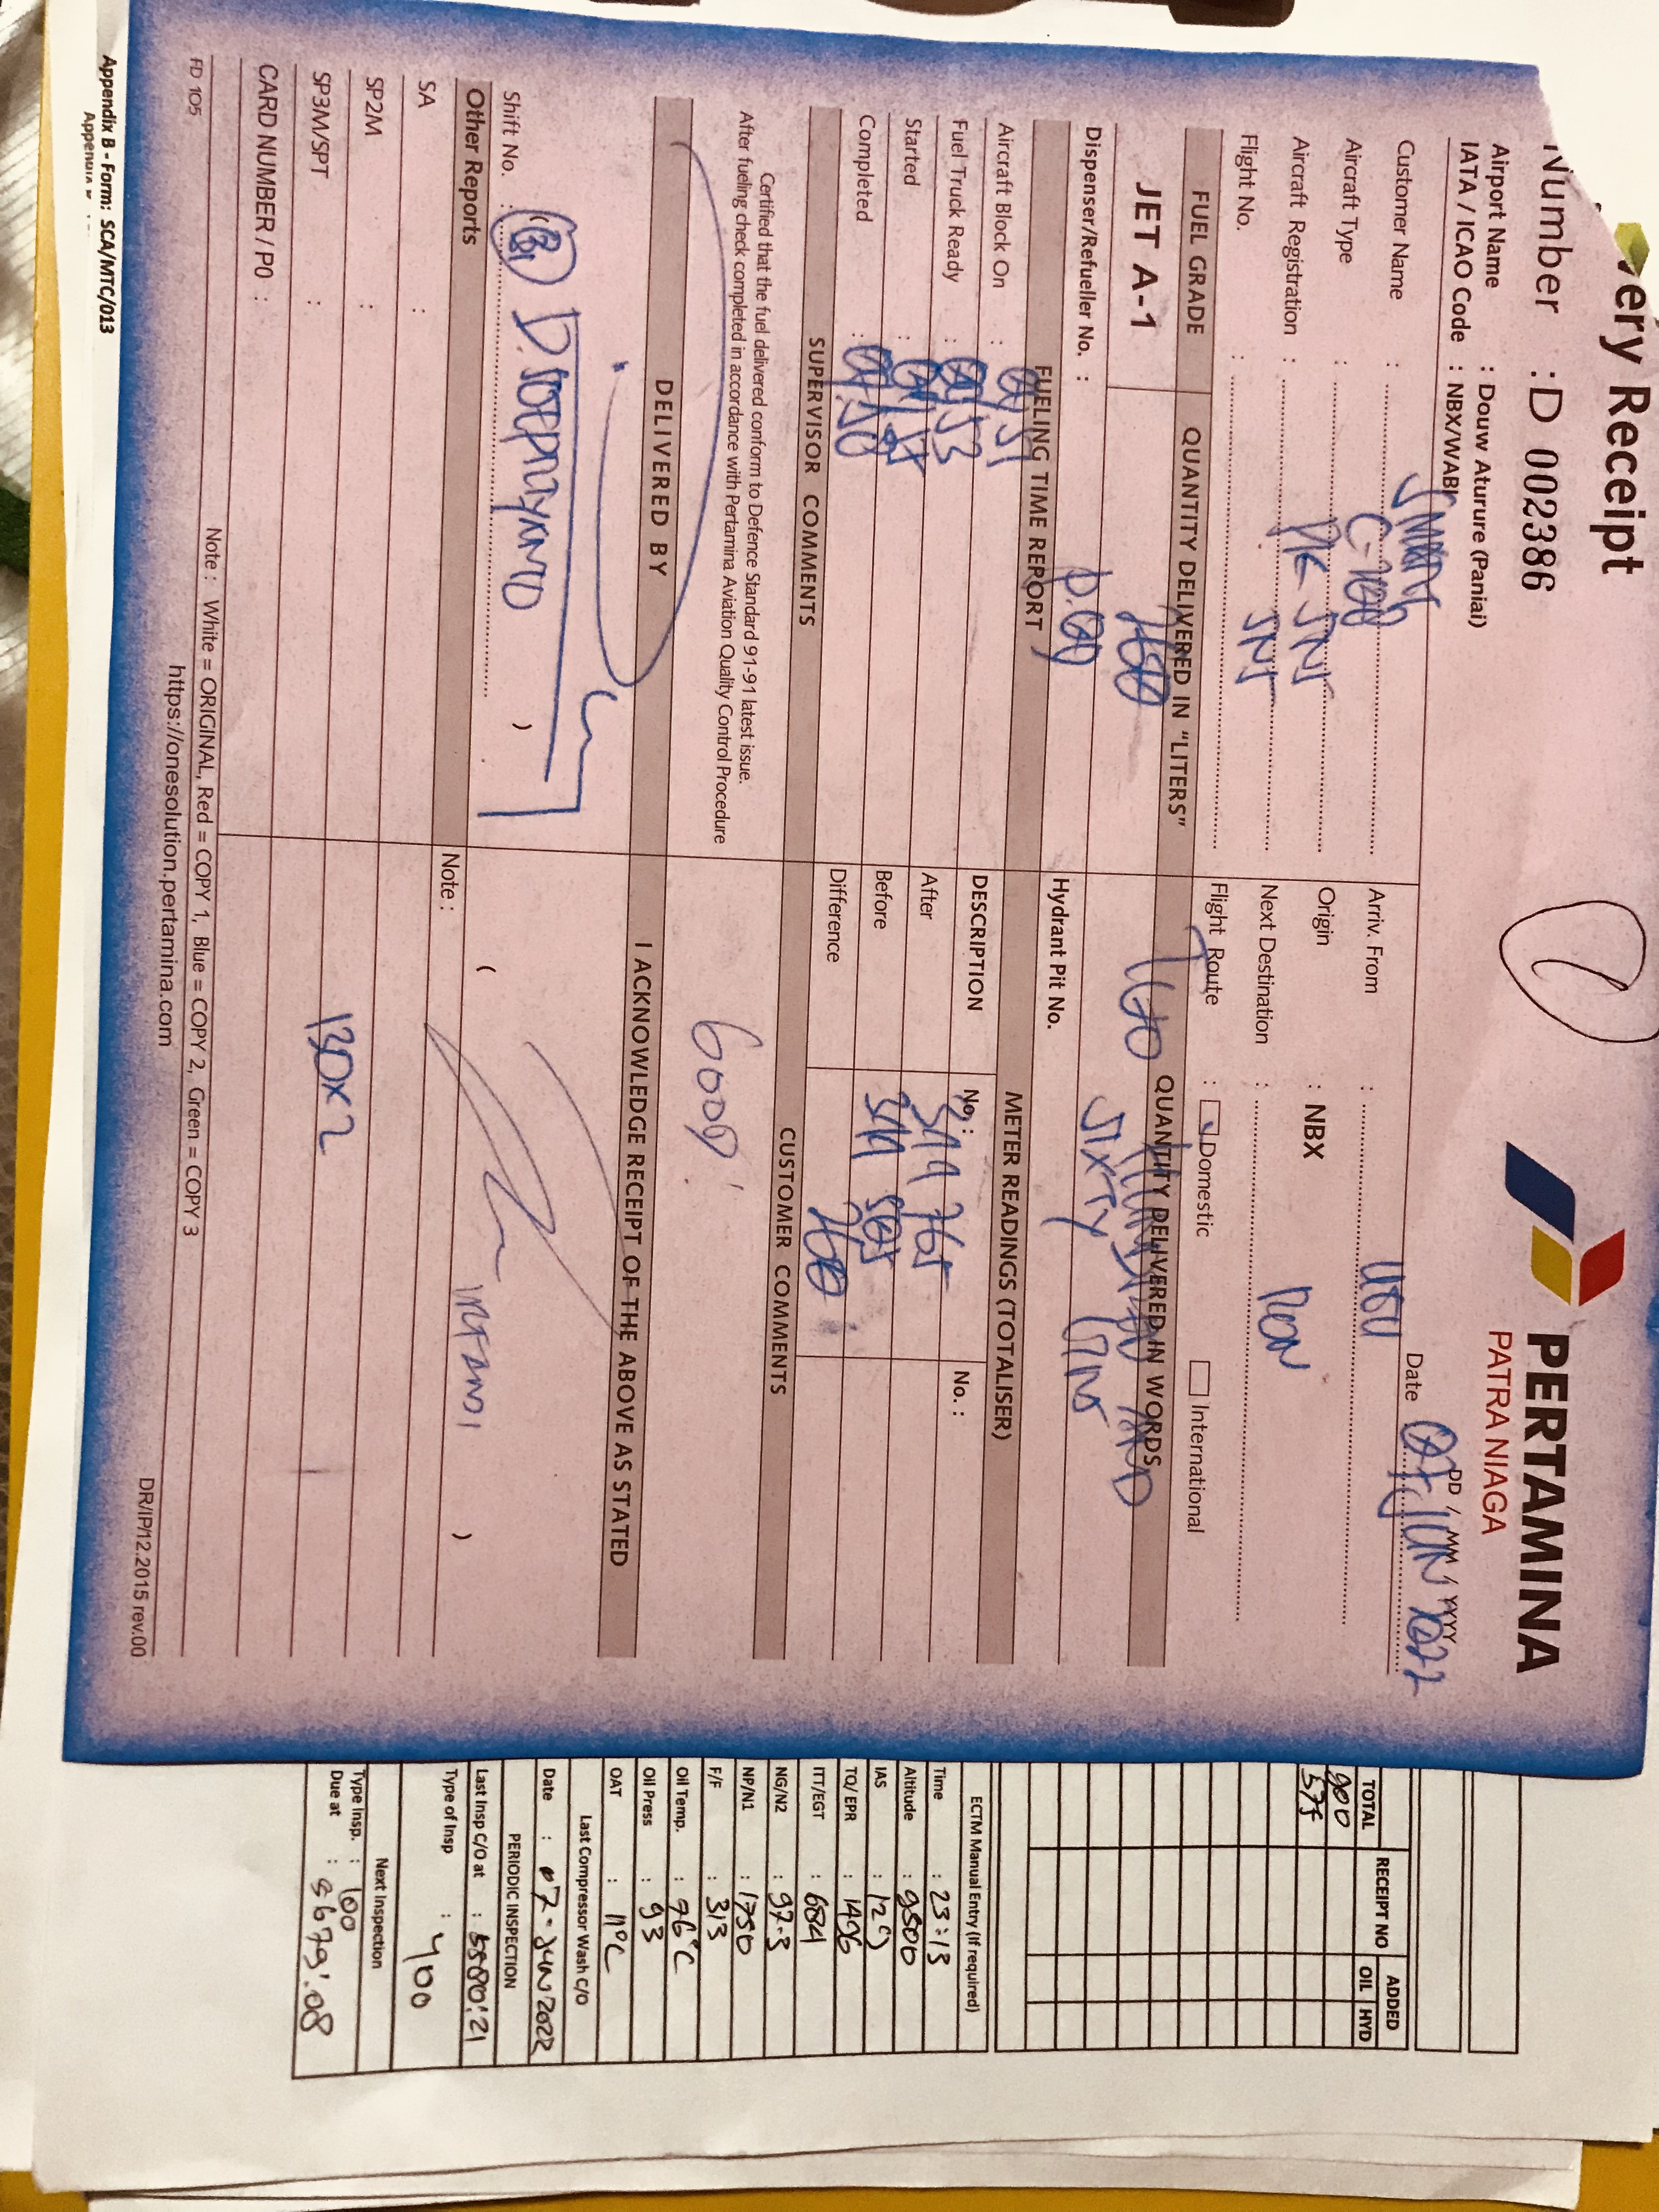 very Receipt
PERTAMINA
PATRA NIAGA
Number : D 002386
Airport Name : Douw Aturure (Paniai)
IATA / ICAO Code : NBX/WABI
DD / MM / YYYY
Date JUN 2022
Customer Name : SMART
Aircraft Type :
Aircraft Registration : PK SNS
Flight No. : SNS
Arriv. From :
Origin : NBX
Next Destination :
Flight Route : Domestic International
FUEL GRADE QUANTITY DELIVERED IN "LITERS" QUANTITY DELIVERED IN WORDS
JET A-1 260
SIXTY
Dispenser/Refueller No. : Hydrant Pit No.
FUELING TIME REPORT METER READINGS (TOTALISER)
Aircraft Block On :
Fuel Truck Ready :
Started :
Completed :
DESCRIPTION No. : No. :
After
Before
Difference 260
SUPERVISOR COMMENTS CUSTOMER COMMENTS
Certified that the fuel delivered conform to Defence Standard 91-91 latest issue.
After fueling check completed in accordance with Pertamina Aviation Quality Control Procedure
GOOD
DELIVERED BY I ACKNOWLEDGE RECEIPT OF THE ABOVE AS STATED
Shift No. : ( )
( IRFANDI )
Other Reports Note :
SA :
SP2M :
SP3M/SPT : 130x2
CARD NUMBER / PO :
FD 105
Note : White = ORIGINAL, Red = COPY 1, Blue = COPY 2, Green = COPY 3
https://onesolution.pertamina.com
DR/IP/12.2015 rev.00
Appendix B - Form: SCA/MTC/013
TOTAL RECEIPT NO ADDED
OIL HYD
900
575
ECTM Manual Entry (If required)
Time : 23:13
Altitude : 9500
IAS : 120
TQ/ EPR : 1406
ITT/EGT : 684
NG/N2 : 97.3
NP/N1 : 1750
F/F : 313
Oil Temp. : 76°C
Oil Press : 93
OAT : 11°C
Last Compressor Wash C/O
Date : 07-JUN 2022
PERIODIC INSPECTION
Last Insp C/O at : 5580:21
Type of Insp : 400
Next Inspection
Type Insp. : 100
Due at : 5679:08